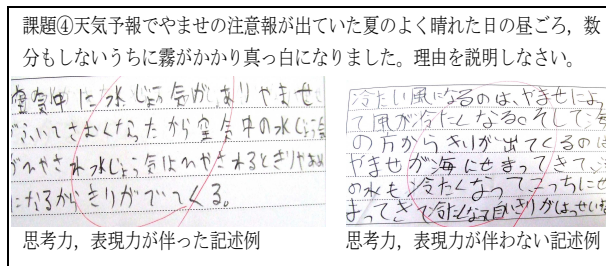 課題④天気予報でやませの注意報が出ていた夏のよく晴れた日の昼ごろ，数
分もしないうちに霧がかかり真っ白になりました。理由を説明しなさい。
空気中に水じょう気がありやませ
がふいてさむくなったから空気中の水じょう気
がひやされ水じょう気はひやされるときりやあめ
になるからきりがでてくる。
冷たい風になるのは、やませによっ
て風が冷たくなる。そして海
の方からきりが出てくるのは
やませが海にせまってきて、
の水も冷たくなってこっちにせ
まってきて冷たくなる白いきりがはっせい
思考力，表現力が伴った記述例
思考力，表現力が伴わない記述例